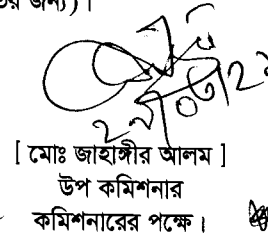 র জন্য)।
[ মোঃ জাহাঙ্গীর আলম ]
উপ কমিশনার
কমিশনারের পক্ষে।